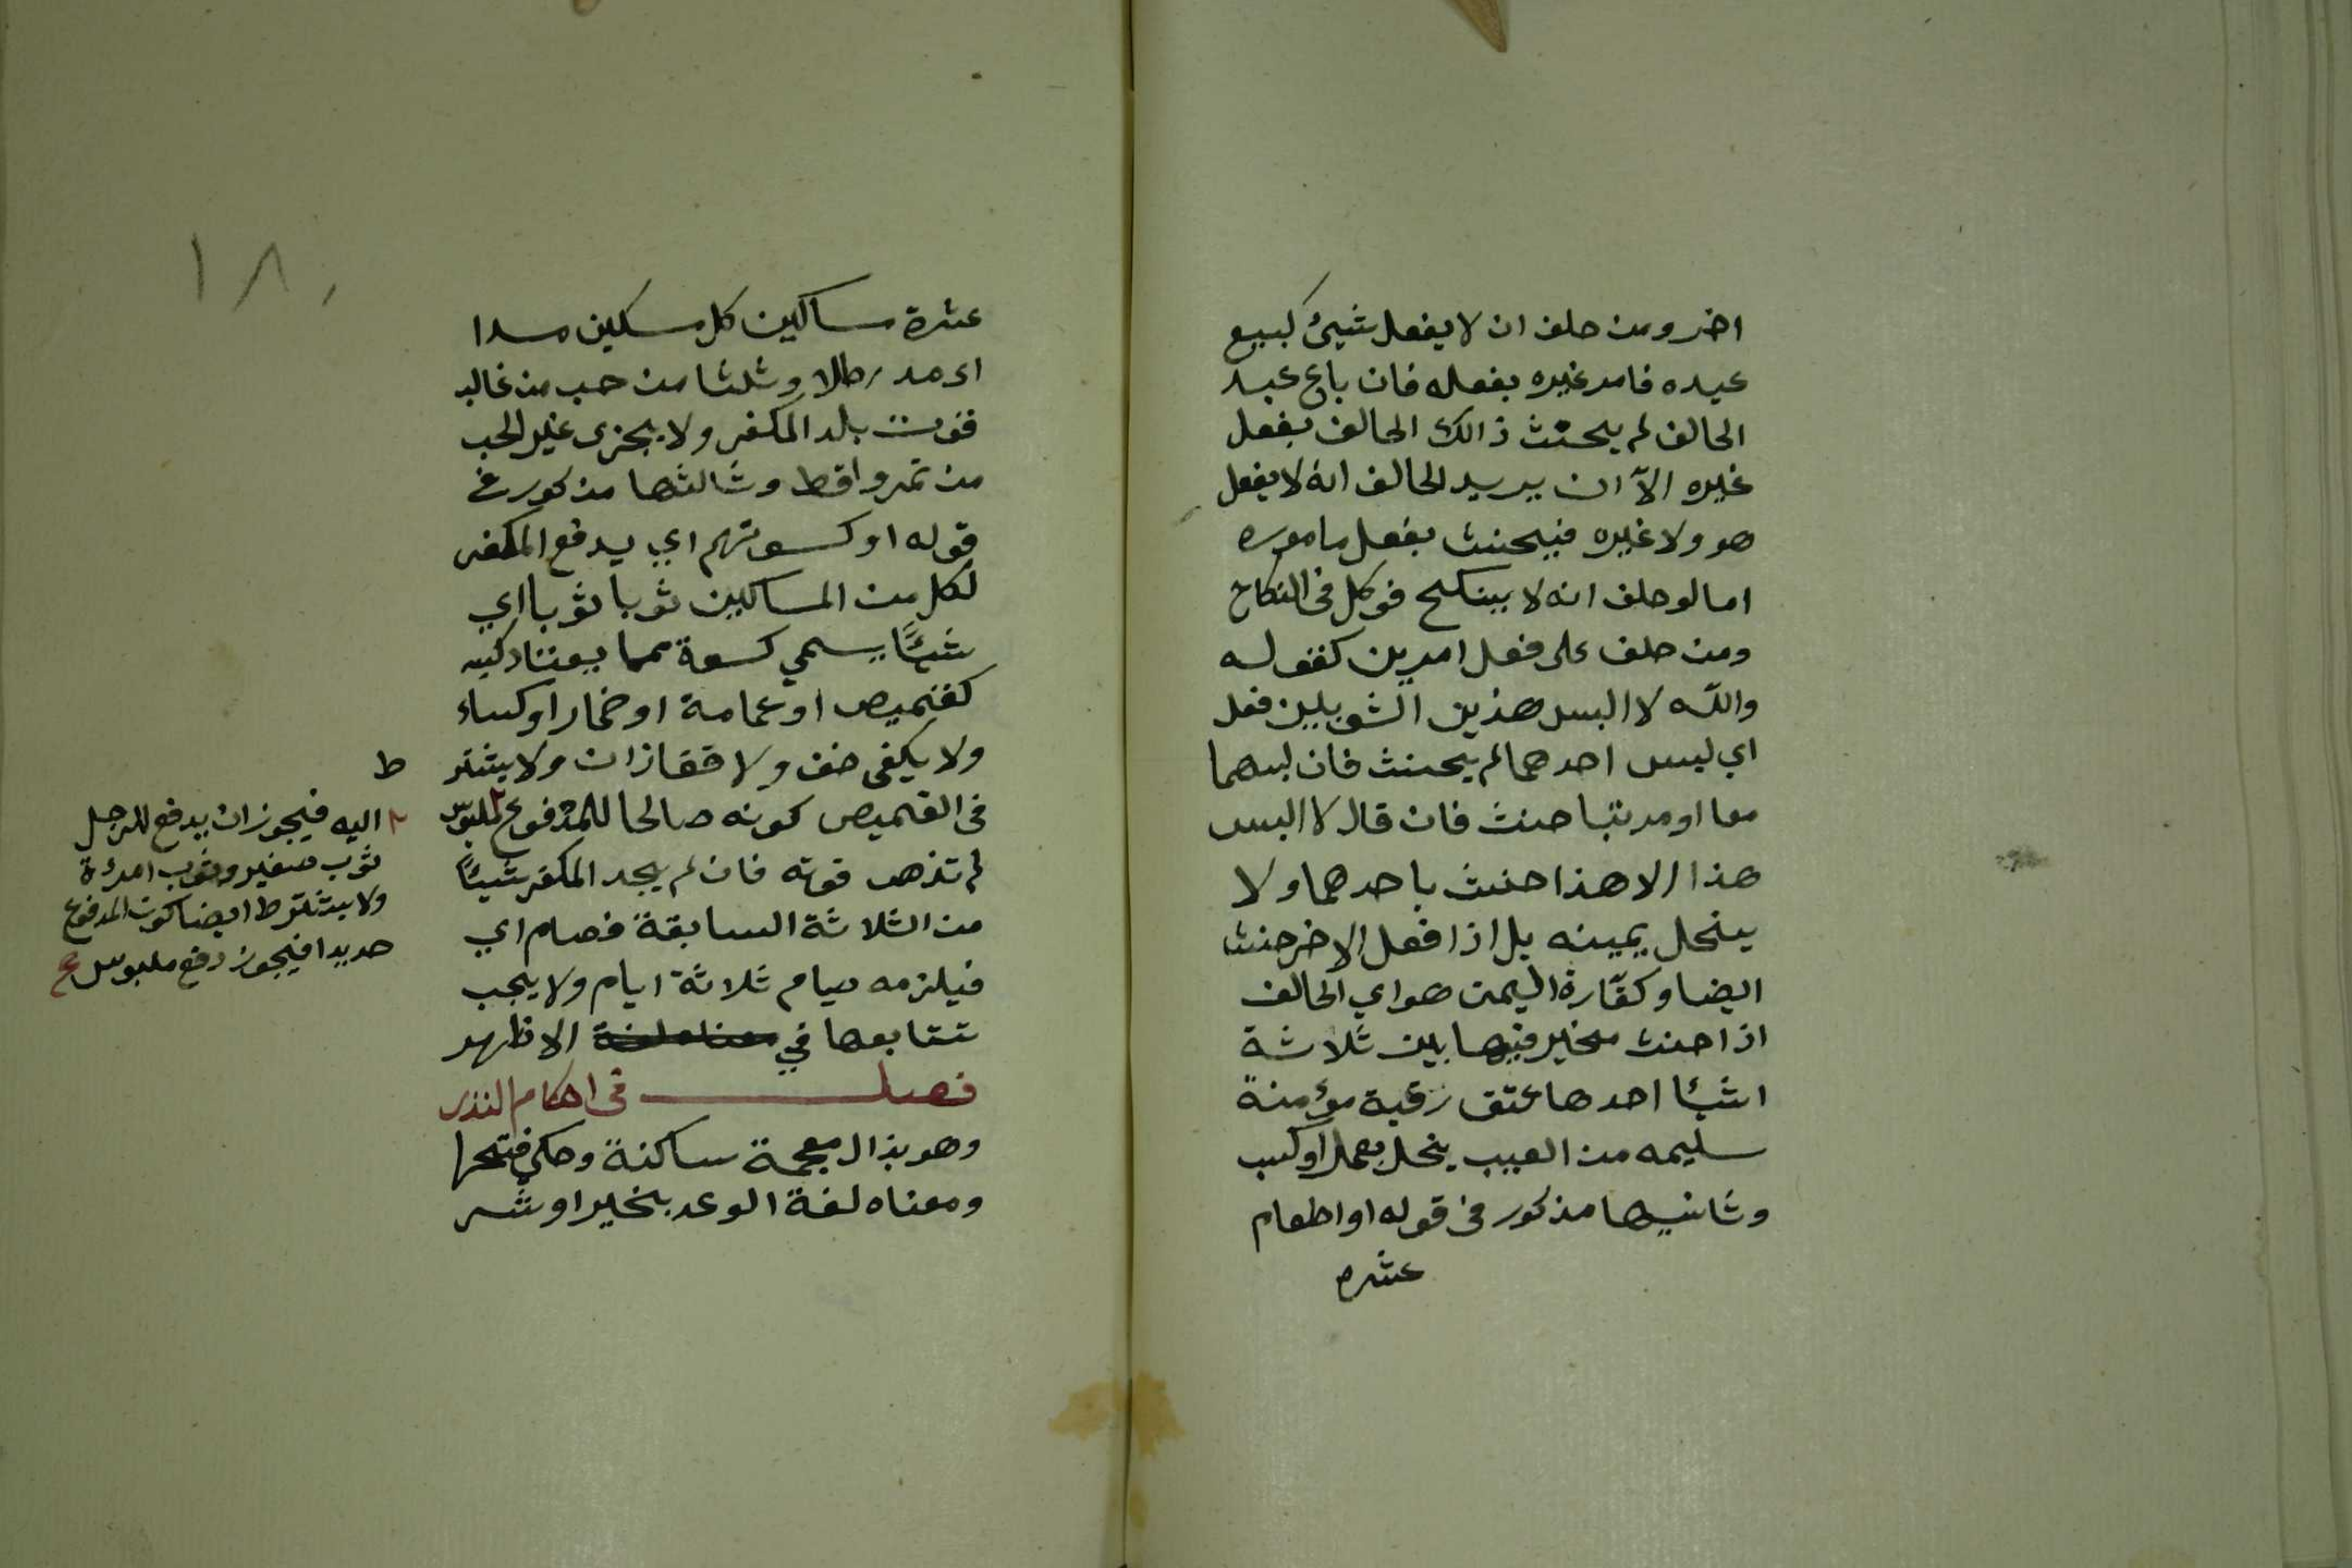 اخر ومن حلف ان لا يفعل شيئ كبيع
عبده فامر غيره بفعله فان باع عبد
الحالف لم يحنث ذالك الحالف بفعل
غيره الاّ ان يريد الحالف انه لا يفعل
هو ولا غيره فيحنث بفعل ماموره
اما لو حلف انه لا ينكح فوكل في النكاح
ومن حلف على فعل امرين كقوله
والله لا البس هذين الثوبين ففعل
اي لبس احدهما لم يحنث فان لبسهما
معا او مرتبا حنث فان قال لا البس
هذا ولا هذا حنث باحدهما ولا
ينحل يمينه بل اذا فعل الاخر حنث
ايضا وكفّارة اليمين هو اي الحالف
اذا حنث مخير فيها بين ثلاثة
اشيئا احدها عتق رقبة مؤمنة
سليمه من العيب يخل بعمل او كسب
وثانيها مذكور في قوله او اطعام
عشره
١٨٠
عشرة مساكين كل مسكين مدا
اى مد رطلا وثلثا من حب من غالب
قوت بلد المكفر ولا يجزى غير الحب
من تمر واقط وثالثها مذكور في
قوله او كسوتهم اي يدفع المكفر
لكل من المساكين ثوبا ثوبا اي
شيئًا يسمي كسوة مما يعتاد لبسه
كقميص او عمامة او خمار او كساء
ولا يكفى خف ولا قفازان ولا يشتر
في القميص كونه صالحا للمدفوع ٢ ملبوس
لم تذهب قوته فان لم يجد المكفر شيئًا
من الثلاثة السابقة فصام اي
فيلزمه صيام ثلاثة ايام ولا يجب
تتابعها في الاظهر
فصل في احكام النذر
وهو بذال معجمة ساكنة وحكي فتحها
ومعناه لغة الوعد بخير او شر
ط
٢ اليه فيجوز ان يدفع للرجل
ثوب صغير وثوب امرءة
ولا يشترط ايضا كون المدفوع
جديدا فيجوز دفع ملبوس